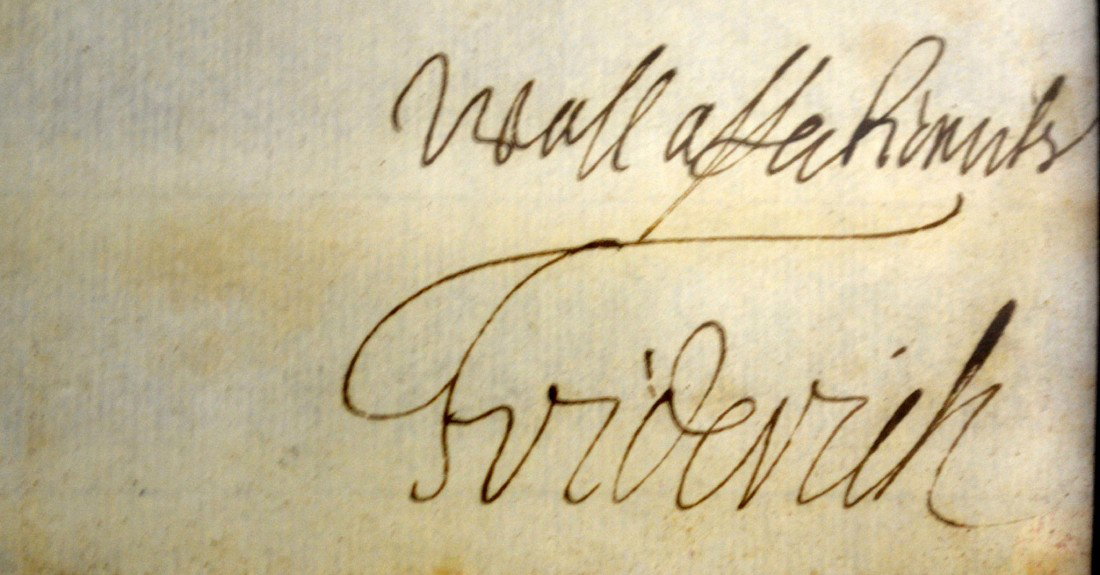 Wollaffectionirter
Friderich